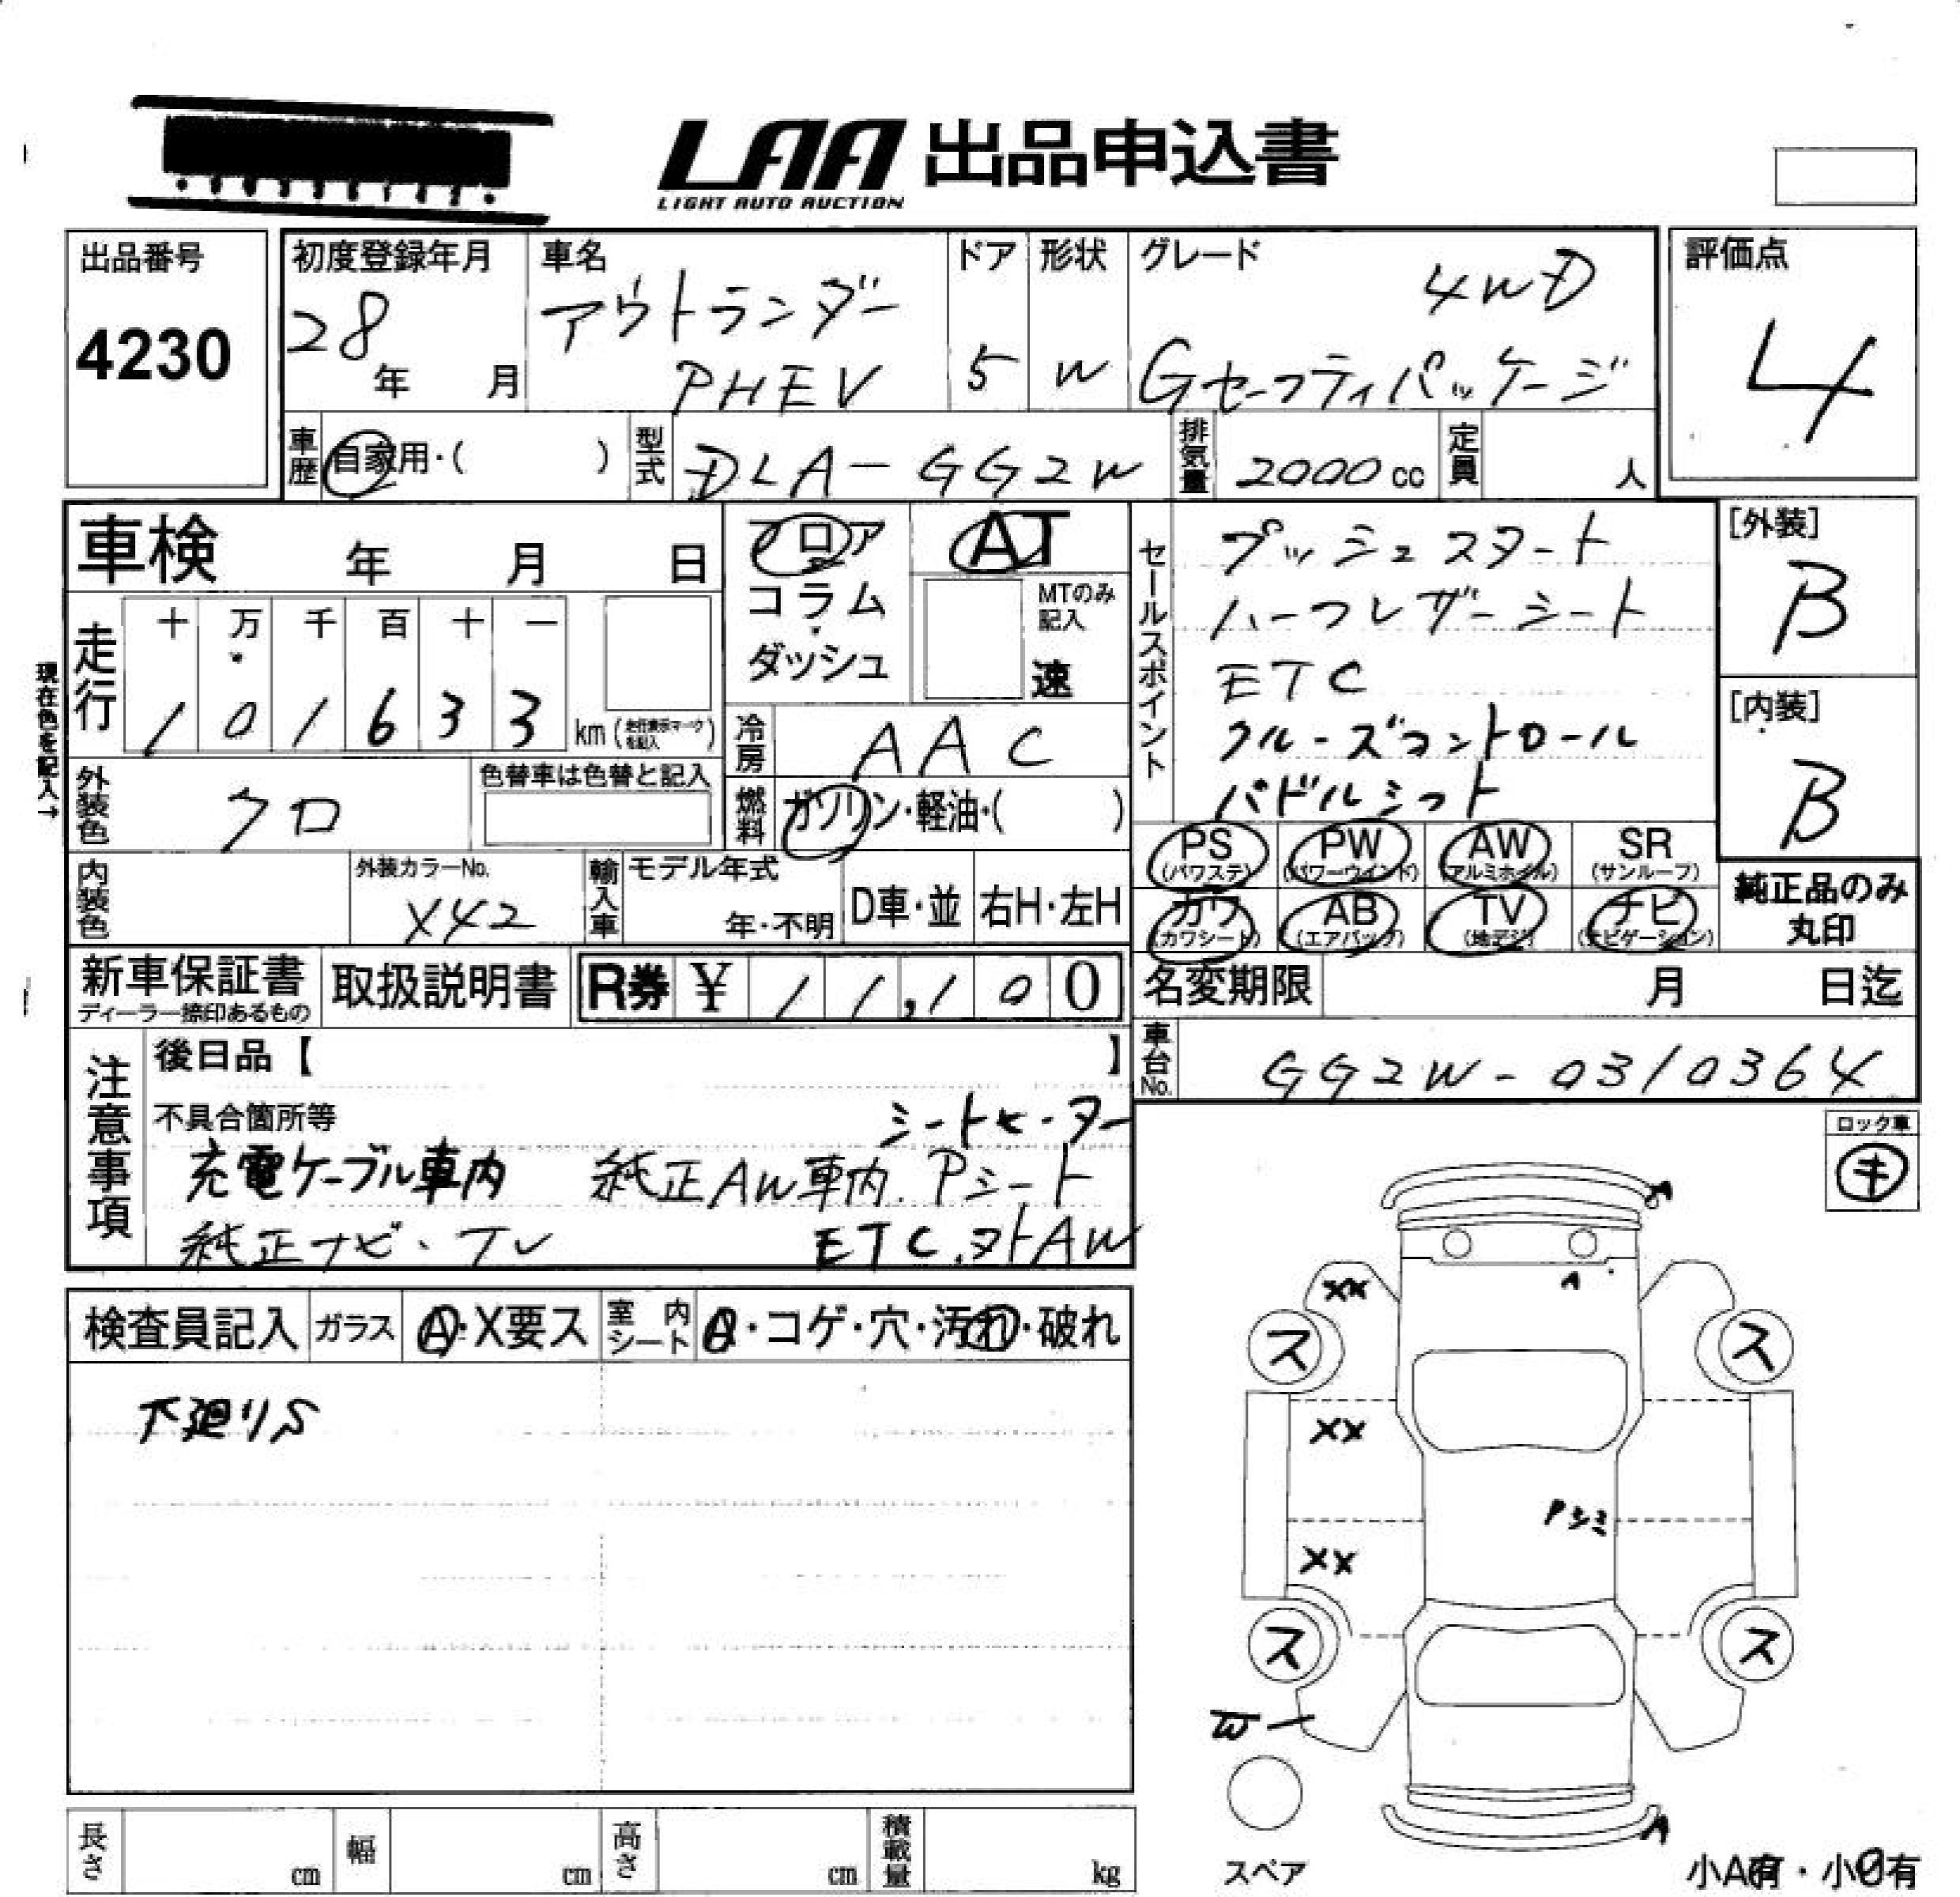 LAA 出品申込書
LIGHT AUTO AUCTION
出品番号
4230
初度登録年月
28年 月
車名
アウトランダー
PHEV
ドア
5
形状
W
グレード
4WD
Gセーフティパッケージ
評価点
4
車歴 自家用・( )
型式 DLA-GG2W
排気量 2000cc
定員 人
車検 年 月 日
フロア
コラム
・
ダッシュ
AT
MTのみ
記入
速
セールスポイント
プッシュスタート
ハーフレザーシート
ETC
クルーズコントロール
パドルシフト
[外装]
B
[内装]
B
現在色を記入→
走行
十 万 千 百 十 一
1 0 1 6 3 3 km(走行表示マークを記入)
冷房 AAC
外装色 クロ
色替車は色替と記入
燃料 ガソリン・軽油・( )
PS (パワステ)
PW (パワーウインド)
AW (アルミホイル)
SR (サンルーフ)
カワ (カワシート)
AB (エアバッグ)
TV (地デジ)
ナビ (ナビゲーション)
純正品のみ
丸印
内装色
外装カラーNo.
X42
輸入車
モデル年式
年・不明
D車・並
右H・左H
新車保証書
ディーラー捺印あるもの
取扱説明書
R券 ¥ 11,100
名変期限 月 日迄
車台No. GG2W-0310364
注意事項
後日品【 】
不具合箇所等
シートヒーター
充電ケーブル車内 純正AW車内.Pシート
純正ナビ・TV ETC.ヌトAW
ロック車
キ
検査員記入
ガラス A・X要ス
室内シート ・コゲ・穴・汚れ・破れ
下廻りS
A
A
XX
ス ス
XX
Pシミ
XX
ス ス
W
A
スペア
小A有・小 有
長さ cm
幅 cm
高さ cm
積載量 kg